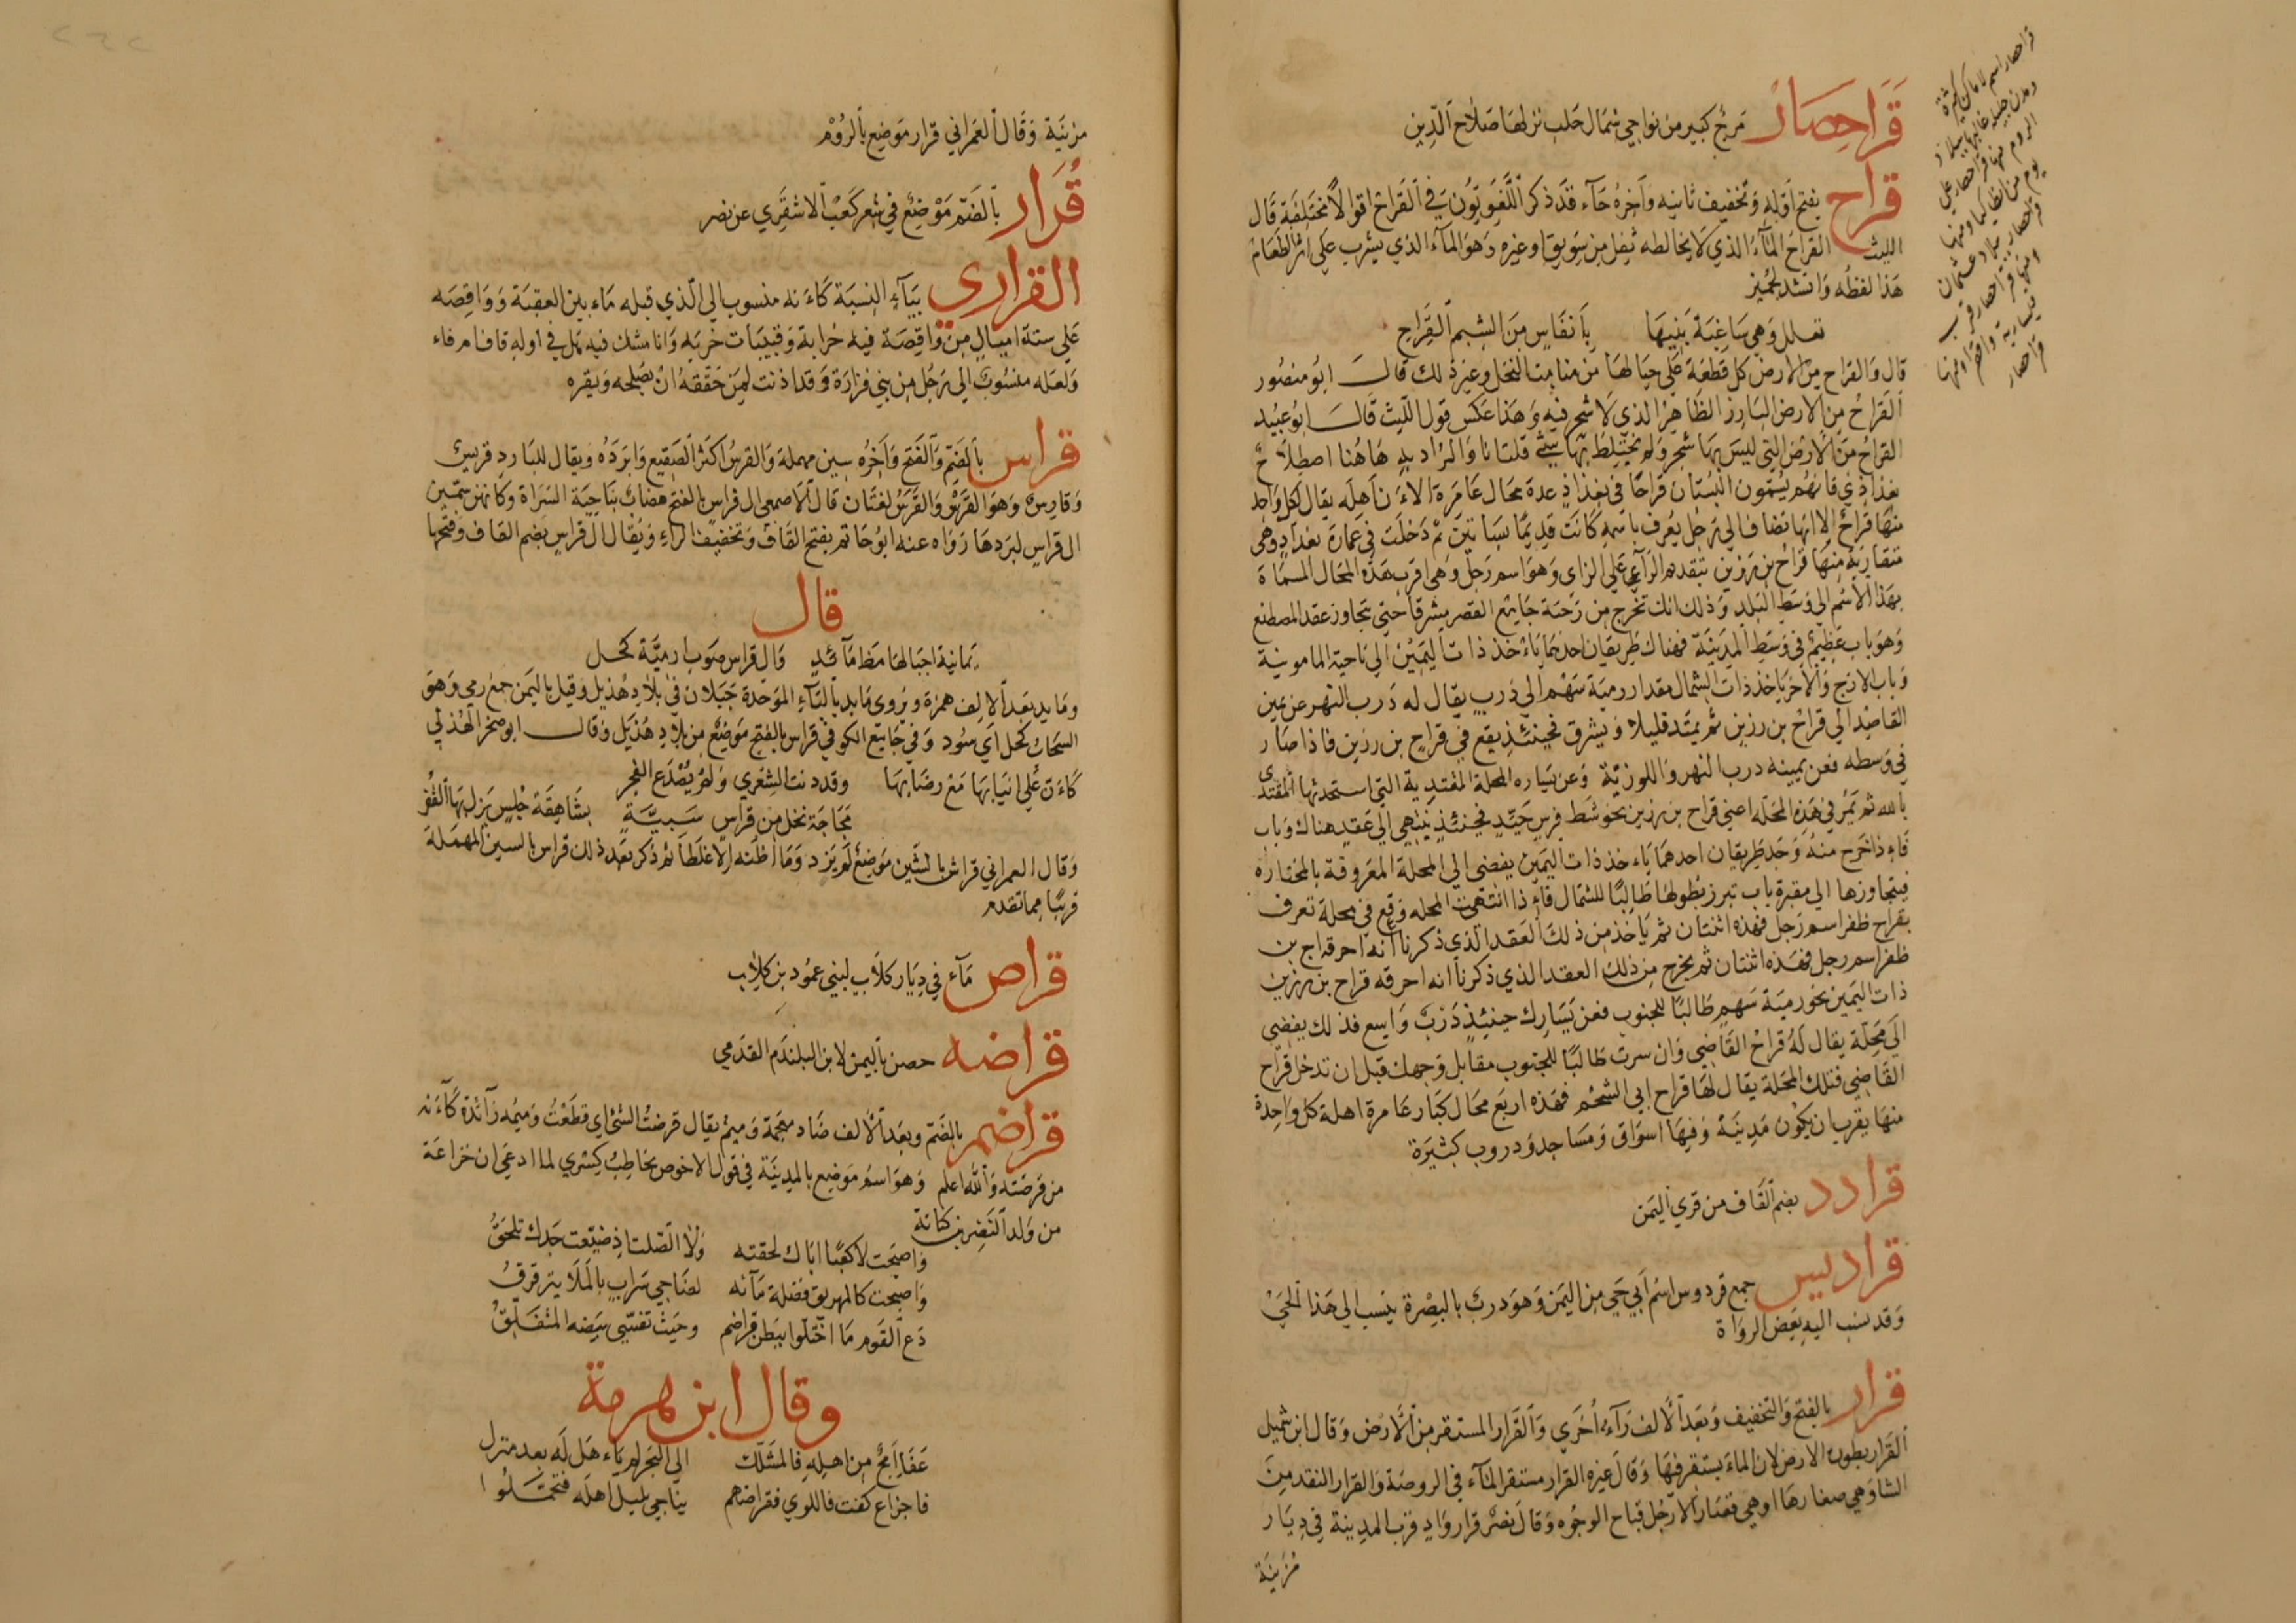 قَرَاحِصَار مَرج كبير من نواحي شمال حلب نزلها صلاح الدين
قراح بفتح اوله وتخفيف ثانيه وآخره حآء قد ذكر اللغويون في القراح اقوالا مختلفة قال
الليث القراح المآء الذي لا يخالطه ثفل من سويق وغيره وهو المآء الذي يشرب على اثر الطعام
هذا لفظه وانشد لجرير
تعلل وهي ساغبة بنيها بأنفاس من الشبم القراح
قال والقراح من الارض كل قطعة على حيالها من منابت النخل وغير ذلك قال ابو منصور
القراح من الارض البارز الظاهر الذي لا شجر فيه وهذا عكس قول الليث قال ابو عبيد
القراح من الارض التي ليس بها شجر ولم يختلط بها شيء قلت انا والمراد به هاهنا اصطلاح
بغداذي فانهم يسمون البستان قراحا في بغداذ عدة محال عامرة الاءن اهله يقال لكل واحد
منها قراح الا انها تضاف الى رجل يعرف باسمه كانت قديما بساتين ثم دخلت في عمارة بغداد وهي
متقاربة منها قراح بن رزين بتقديم الرآء على الزاي وهو اسم رجل وهي اقرب هذه المحال المسماة
بهذا الاسم الى وسط البلد وذلك انك تخرج من رحبة جامع القصر مشرقا حتى تتجاوز عقد المصطنع
وهو باب عظيم في وسط المدينة فهناك طريقان احدهما يأخذ ذات اليمين الى ناحية المامونية
وباب الازج والاخر ياخذ ذات الشمال مقدار رمية سهم الى درب يقال له درب النهر عن يمين
القاصد الى قراح بن رزين ثم يمتد قليلا ويشرق فحينئذ يقع في قراح بن رزين فاذا صار
في وسطه فعن يمينه درب النهر واللوزية وعن يساره المحلة المقتدية التي استحدثها المقتدى
بالله ثم تمر في هذه المحلة اعني قراح بن رزين نحو شط فرس جيد فحينئذ ينتهي الى عقد هناك وباب
فاءذا خرج منه وجد طريقان احدهما ياءخذ ذات اليمين يفضى الى المحلة المعروفة بالمختاره
فيتجاوزها الى مقبرة باب تبرز بطولها طالبا للشمال فاءذا انتهت المحله وقع في محلة تعرف
بقراح ظفر اسم رجل فهذه اثنتان ثم ياخذ من ذلك العقد الذي ذكرنا انه احر قراح بن
ظفر اسم رجل فهذه اثنتان ثم يخرج من ذلك العقد الذي ذكرنا انه احرقه قراح بن رزين
ذات اليمين نحو رمية سهم طالبا للجنوب فعن يسارك حينئذ درب واسع فذلك يفضي
الى محلة يقال له قراح القاضي وان سرت طالبا للجنوب مقابل وجهك قبل ان تدخل قراح
القاضي فتلك المحلة يقال لها قراح ابي الشحم فهذه اربع محال كبار عامرة اهلة كل واحدة
منها يقرب ان يكون مدينة وفيها اسواق ومساجد ودروب كثيرة
قرادد بضم القاف من قرى اليمن
قراديس جمع قردوس اسم ابي حي من اليمن وهو درب بالبصرة ينسب الى هذا الحي
وقد نسب اليه بعض الرواة
قرار بالفتح والتخفيف وبعد الالف رآء اخرى والقرار المستقر من الارض وقال ابن شميل
القرار بطون الارض لان الماء يستقر فيها وقال غيره القرار مستقر المآء في الروضة والقرار النقد من
الشاو هي صغارها او هي قصار الارجل قباح الوجوه وقال نصر قرار واد قرب المدينة في ديار
مزينة
قراحصار اسم لاماكن كثيرة
ومدن جليلة غالبها ببلاد
الروم منها قراحصار على
يوم من انطاكيا ومنها
ببلاد عثمان
ومنها قراحصار قرب
قيسارية
قراحصار
مزينة وقال العمراني قرار موضع بالروم
قُرَار بالضم موضع في شعر كعب الاشقري عن نصر
القراري بيآء النسبة كاءنه منسوب الى الذي قبله ماء بين العقبة وواقصه
على ستة اميال من واقصة فيه خرابة وقبيبات خربه وانا مشك فيه هل في اوله قاف ام فاء
ولعله منسوب الى رجل من بني فزارة وقد اذنت لمن حققه ان يصلحه ويقره
قراس بالضم والفتح وآخره سين مهملة والقرس اكثر الصقيع وابرده ويقال للبارد قريس
وقارس وهو القرس والقرس لغتان قال الاصمعي ال قراس بالفتح هضاب بناحية السراة وكانهن سمين
ال قراس لبردها رواه عنه ابو حاتم بفتح القاف وتخفيف الراء ويقال ال قراس بضم القاف وفتحها
قال
يمانية اجبالها مظ مآئد وال قراس صوب ارمية كحل
وما يد بعد الالف همزة ويروى مابد بالبآء الموحدة جبلان في بلاد هذيل وقيل باليمن جمع رمي وهو
السحاب كحل اي سود وفي جامع الكوفي قراس بالفتح موضع من بلاد هذيل وقال ابو صخر الهذلي
كاءن على انيابها مع رضابها وقد دنت الشعرى ولم يصدع الفجر
مجاجة نحل من قراس سبية بشاهقة جلس يزل بها الغفر
وقال العمراني قراش بالشين موضع لم يزد وما اظنه الا غلطا ثم ذكر بعد ذلك قراس بالسين المهملة
قريبا مما تقدم
قراص مآء في ديار كلاب لبني عمود بن كلاب
قراضه حصن باليمن لابن البليدم القدمي
قراضم بالضم وبعد الالف ضاد معجمة وميم يقال قرضت الشئ اي قطعت وميمه زآئدة كآءنه
من قرضته والله اعلم وهو اسم موضع بالمدينة في قول الاخوص يخاطب كسرى لما ادعى ان خزاعة
من ولد النضر بن كنانة
واصبحت لا كعبا اباك لحقته ولا الصلت اذ ضيعت جدك تلحق
واصبحت كالمهريق فضلة مآئه لضاحي سراب بالملا يترقرق
دع القوم ما احتلوا ببطن قراضم وحيث تفشى بيضه المتفلق
وقال ابن هرمة
عفا امج من اهله فالمشلل الى البحر لم ياءهل له بعد منزل
فاجزاع كفت فاللوى فقراضم يناجي بليل اهله فتحملوا